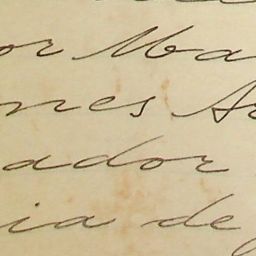 or Ma
nes A
ador
ia de